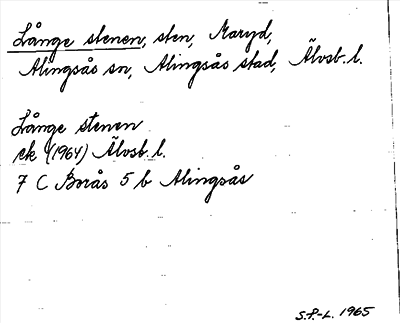 Långe stenen, sten, Maryd,
Alingsås sn, Alingsås stad, Älvsb. l.
Långe stenen
ek (1964) Älvsb. l.
7 C Borås 5 b Alingsås
S.P-L. 1965